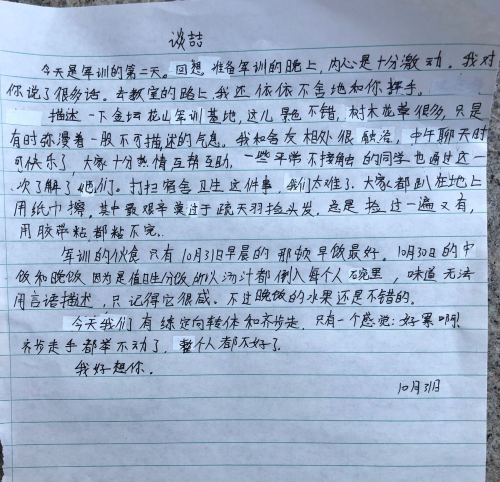 谈喆
今天是军训的第二天。回想准备军训的晚上，内心是十分激动。我对
你说了很多话。去教室的路上，我还依依不舍地和你挥手。
描述一下金坛花山军训基地，这儿景色不错，树木花草很多，只是
有时弥漫着一股不可描述的气息。我和舍友相处很融洽，中午聊天时
可快乐了，大家十分热情互帮互助，一些平常不接触的同学也通过这一
次了解了她们。打扫宿舍卫生这件事，我们太难了。大家都趴在地上
用纸巾擦，其中最艰辛莫过于疏天羽捡头发，总是捡过一遍又有，
用胶带粘都粘不完。
军训的伙食只有10月31日早晨的那顿早饭最好。10月30日的中
饭和晚饭因为是值日生分饭，所以汤汁都倒入每个人碗里，味道无法
用言语描述，只记得它很咸。不过晚饭的水果还是不错的。
今天我们有练定向转体和齐步走，只有一个感觉：好累啊！
齐步走手都举不动了，整个人都不好了。
我好想你。
10月31日